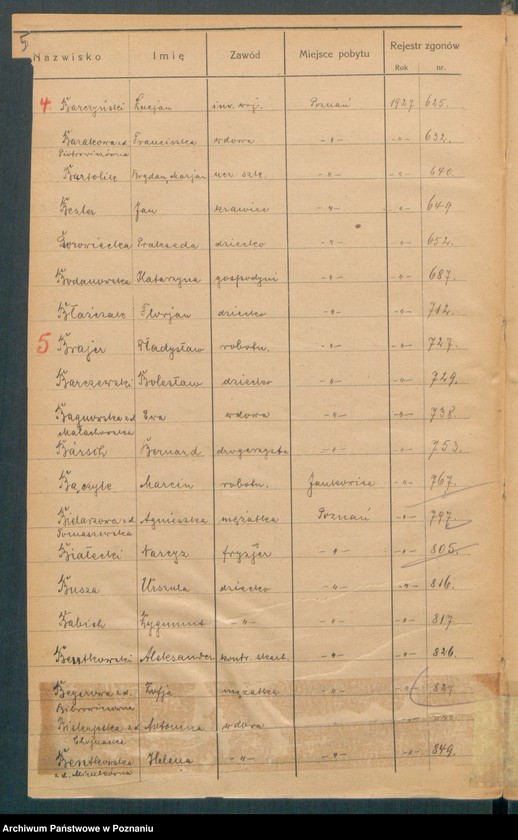 5
Nazwisko Imię Zawód Miejsce pobytu Rejestr zgonów
Rok nr.
4. Barczyński Lucjan inw. woj. Poznań 1927 625.
Franciszka wdowa -"- -"- 632.
Piotrowiczówna
Bartolik Bogdan, Marjan ucz. szk. -"- -"- 640.
Bester Jan krawiec -"- -"- 649
Prakseda dziecko -"- -"- 652.
Bodanowska Katarzyna gospodyni -"- -"- 687.
Błaszczak Florjan dziecko -"- -"- 712.
5 Brajer Władysław robotn. -"- -"- 727.
Barczewski Bolesław dziecko -"- -"- 729.
Bagnowska z d. Ewa wdowa -"- -"- 738.
Małachowska
Bärsch Bernard drogerzysta -"- -"- 753.
Bączyk Marcin robotn. Jankowice -"- 767.
Bielarzowa z d. Agnieszka mężatka Poznań -"- 797.
Tomaszewska
Białecki Narcyz fryzjer -"- -"- 805.
Busza Urszula dziecko -"- -"- 816.
Babich Zygmunt -"- -"- -"- 817.
Bentkowski Aleksander kontr. skarb. -"- -"- 826.
Begerowa z d. Zofja mężatka -"- -"- 827
Bibrowiczówna
Antonina wdowa -"- -"-
Chojnacka
Bentkowska Helena -"- -"- -"- 849.
z d.
Archiwum Państwowe w Poznaniu